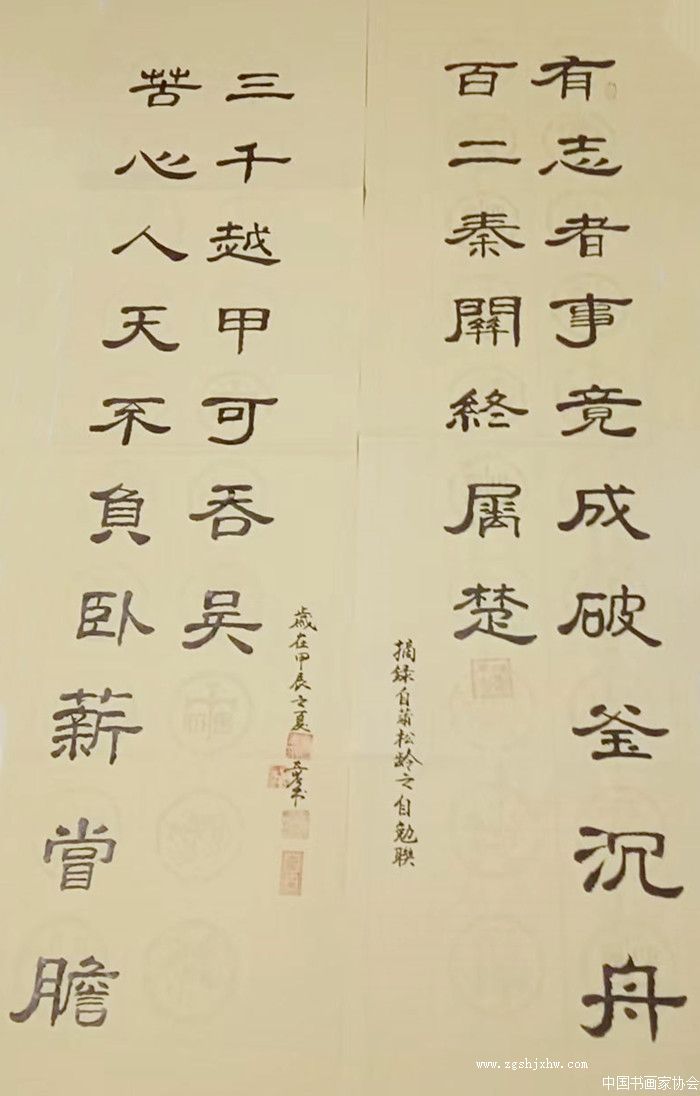 有志者事竟成破釜沉舟
百二秦關終属楚
摘録自蒲松龄之自勉联
苦心人天不負卧薪嘗膽
三千越甲可吞吴
歳在甲辰之夏
www.zgshjxhw.com
中国书画家协会